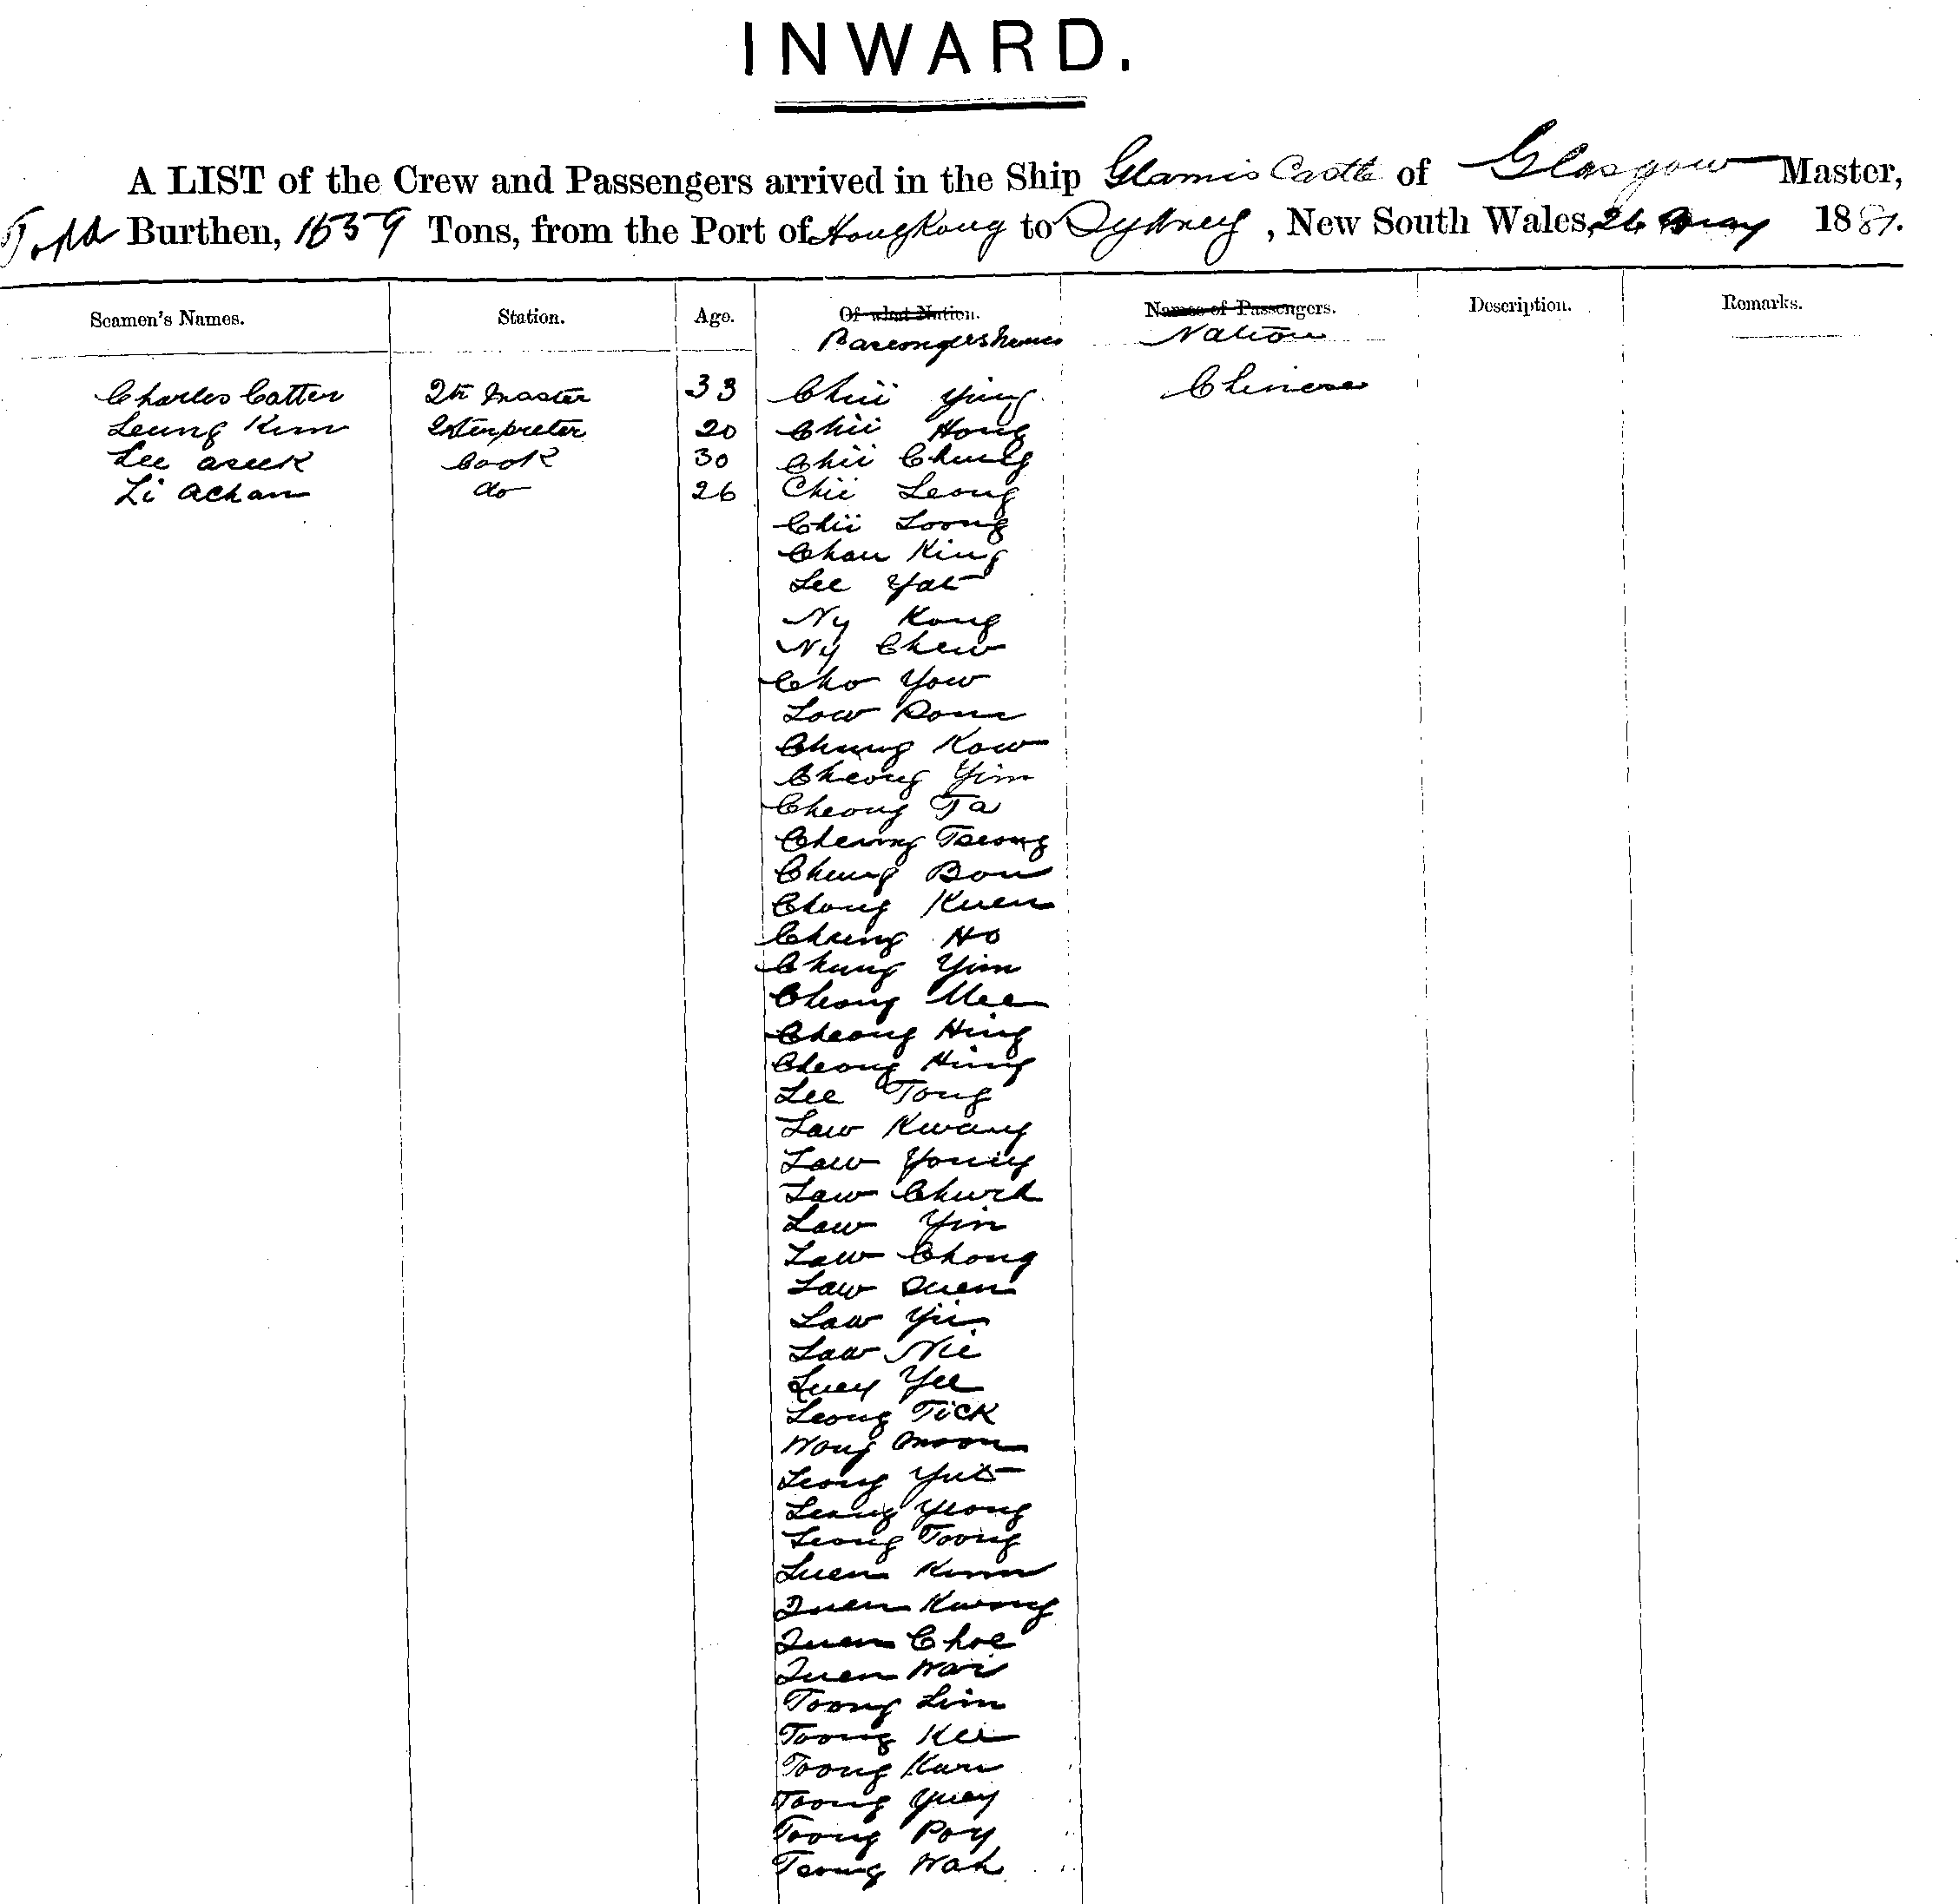 INWARD.
A LIST of the Crew and Passengers arrived in the Ship Glamis Castle of Glasgow Master,
Todd Burthen, 1559 Tons, from the Port of Hongkong to Sydney, New South Wales, 24 May 1881.
Seamen's Names. Station. Age. Of what Nation. Names of Passengers. Description. Remarks.
Passengers Names Nation
Charles Catter 2nd Master 33 Chii Ying Chinese
Leung Kim Interpreter 20 Chii Hong
Lee aseek Cook 30 Chii Chung
Li Achan do 26 Chii Leong
Chii Loong
Chau King
Lee Yat
Ny Kong
Ny Chew
Cho Yow
Low
Chung Kow
Cheong Yim
Cheong Ta
Cheong Tseong
Cheung Bow
Chong Kuen
Cheung Ho
Chung Yim
Cheong Mee
Cheong Hing
Cheong Hing
Lee Tong
Law Kwang
Law Young
Law Chuck
Law Yin
Law Chong
Law Suen
Law Yii
Law Nie
Luey Yee
Leong Tick
Wong Moon
Leong Yut
Leong Yeong
Leong Toong
Luen Kum
Quen Kwong
Quen Choe
Quen Wai
Toong Lim
Toong Kee
Toong Kun
Toong Yuey
Toong Poy
Toong Wah